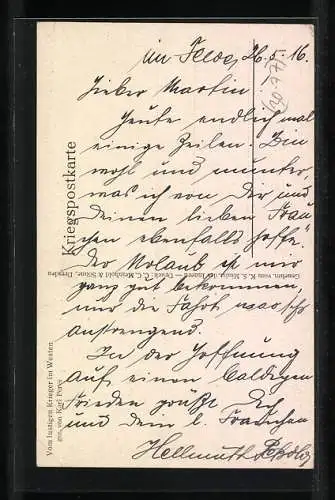 im Felde, 26.5.16.
Lieber Martin
Heute endlich mal
einige Zeilen. Bin
wohl und munter,
was ich von Dir und
Deinen lieben Frau
chen ebenfalls hoffe.
Der Urlaub ist mir
ganz gut bekommen,
nur die Fahrt war sehr
anstrengend.
In der Hoffnung
auf einen baldigen
Frieden grüßt Dich
und Dein l. Frauchen
Hellmuth
Kriegspostkarte
Vom lustigen Krieger im Westen
gez. von Karl Pores
Druck: C. C. Meinhold & Söhne, Dresden